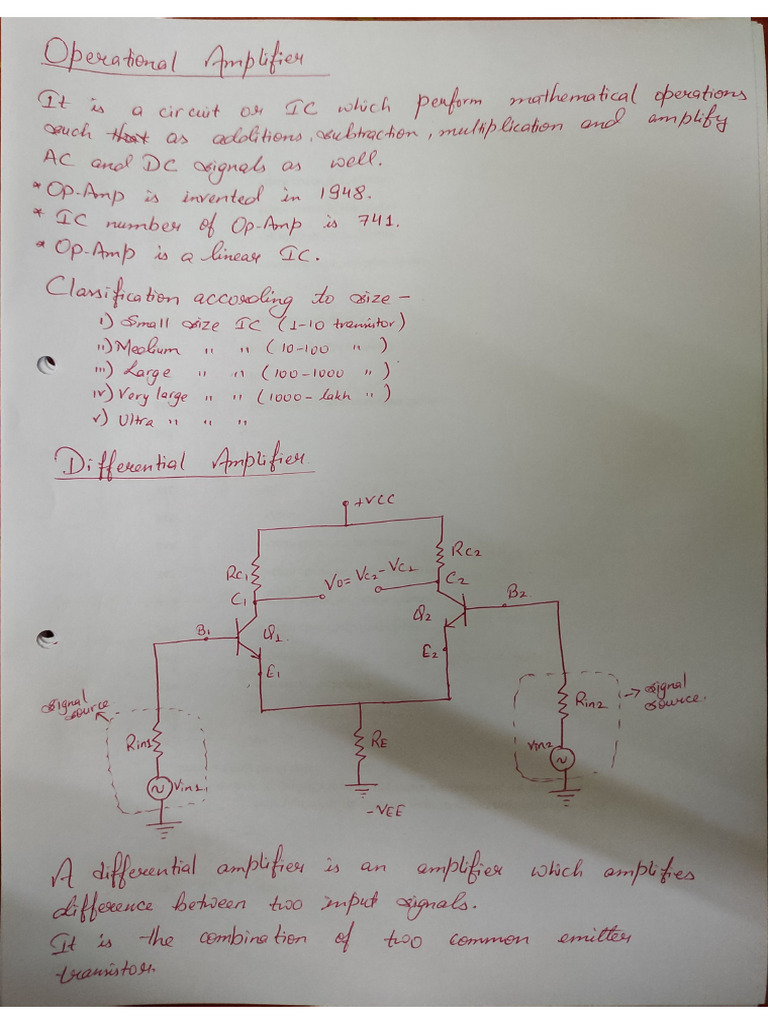 Operational Amplifier
It is a circuit or IC which perform mathematical operations
such that as additions, subtraction, multiplication and amplify
AC and DC signals as well.
* Op-Amp is invented in 1948.
* IC number of Op-Amp is 741.
* Op-Amp is a linear IC.
Classification according to size -
i) Small size IC (1-10 transistor)
ii) Medium " " (10-100 " )
iii) Large " " (100-1000 " )
iv) Very large " " (1000- lakh " )
v) Ultra " " "
Differential Amplifier
+VCC
RC1
RC2
C1
V0 = VC2 - VC1
C2
B1
Q1
Q2
B2
E1
E2
signal source
Rin1
Vin1
RE
-VEE
Rin2
Vin2
signal source
A differential amplifier is an amplifier which amplifies
difference between two input signals.
It is the combination of two common emitter
transistor.